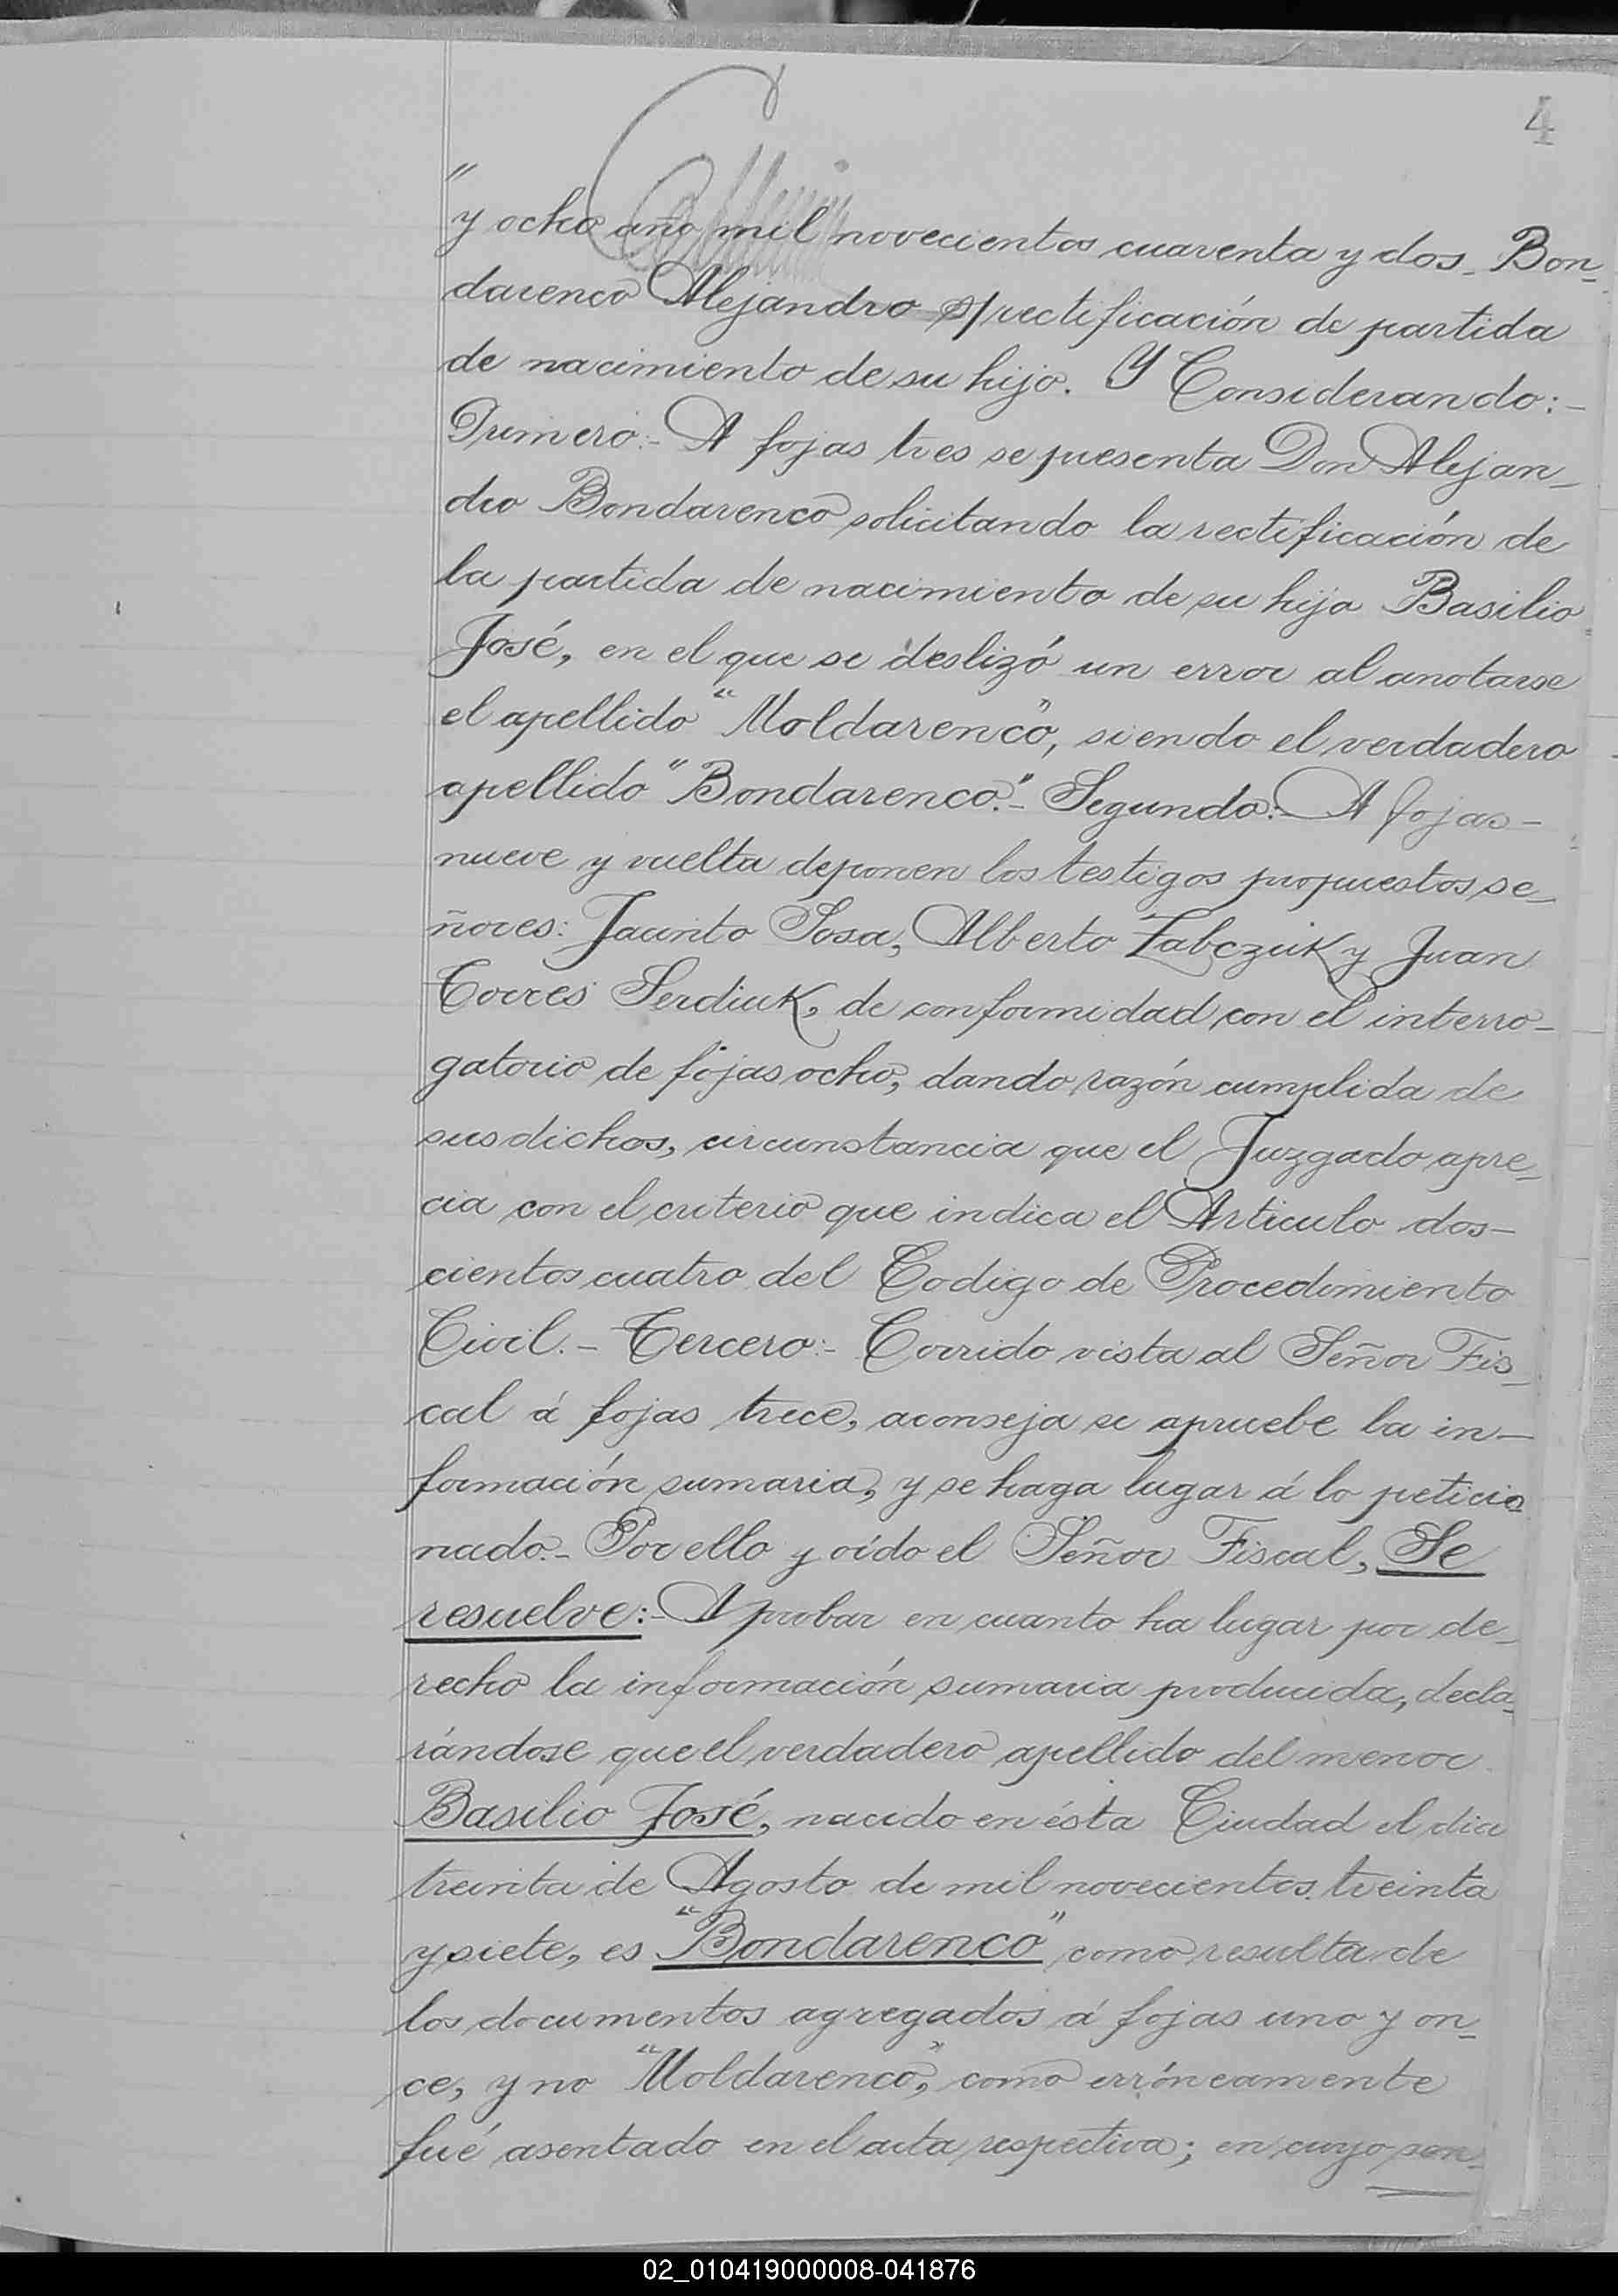 4
"
y ocho año mil novecientos cuarenta y dos_ Bon_
darenco Alejandro s/rectificación de partida
de nacimiento de su hijo. Y Considerando:-
Primero:- A fojas tres se presenta Don Alejan_
dro Bondarenco solicitando la rectificación de
la partida de nacimiento de su hijo Basilio
José, en el que se deslizó un error al anotarse
el apellido "Moldarenco", siendo el verdadero
apellido "Bondarenco".- Segundo:- A fojas-
nueve y vuelta deponen los testigos propuestos se_
ñores: Jacinto Sosa, Alberto Zabczuk y Juan
Torres Serdiuk, de conformidad con el interro-
gatorio de fojas ocho, dando razón cumplida de
sus dichos, circunstancia que el Juzgado apre_
cia con el criterio que indica el Articulo dos-
cientos cuatro del Codigo de Procedimiento
Civil.- Tercero:- Corrido vista al Señor Fis_
cal á fojas trece, aconseja se apruebe la in-
formación sumaria, y se haga lugar á lo peticio_
nado.- Por ello y oído el Señor Fiscal, Se
resuelve:- Aprobar en cuanto ha lugar por de_
recho la información sumaria producida, decla_
rándose que el verdadero apellido del menor
Basilio José, nacido en ésta Ciudad el dia
treinta de Agosto de mil novecientos treinta
y siete, es "Bondarenco" como resulta de
los documentos agregados á fojas uno y on_
ce, y no "Moldarenco", como erróneamente
fué asentado en el acta respectiva; en cuyo sen_
02_010419000008-041876